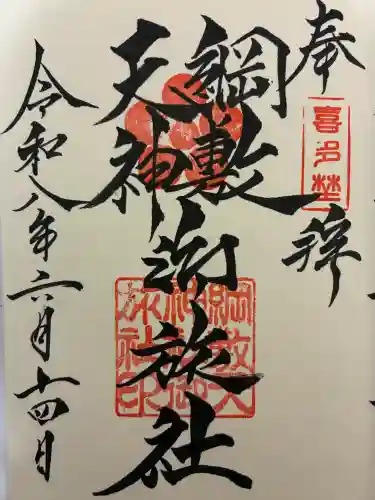 奉拝
喜多埜
綱敷
天神
御旅社
綱敷天
神社御
旅社印
令和八年六月十四日